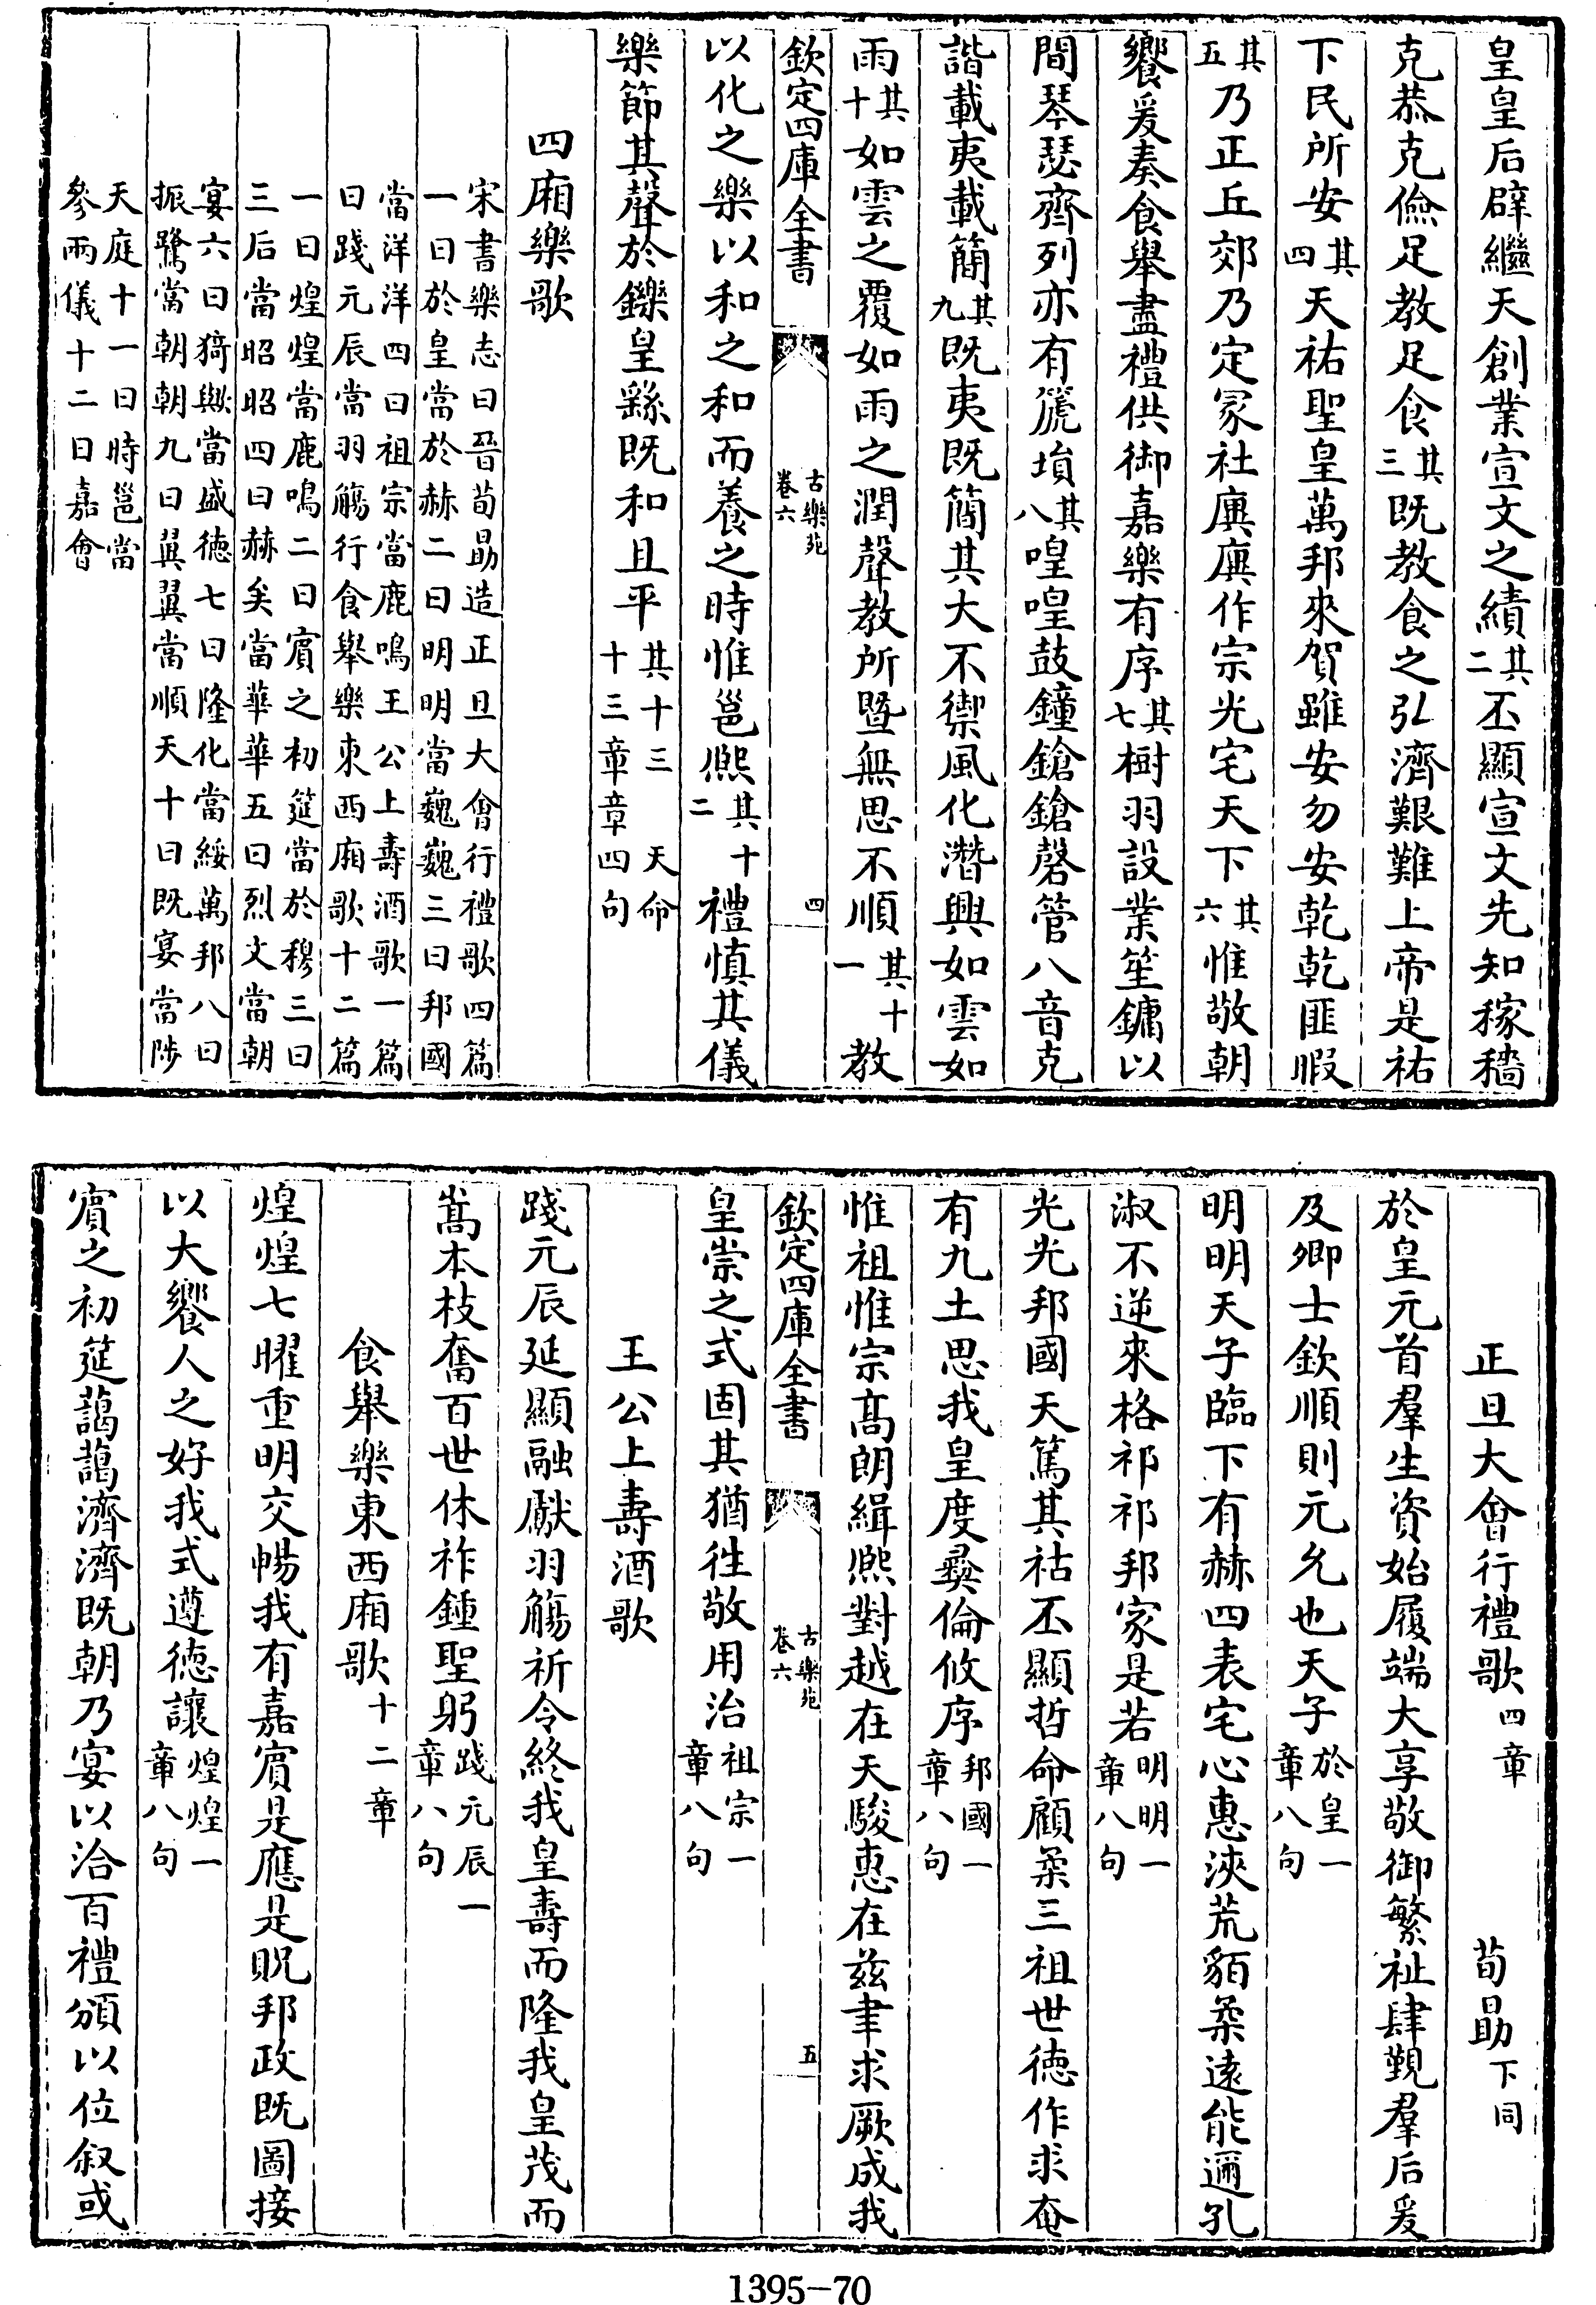 皇皇后辟繼天創業宣文之績其二丕顯宣文先知稼穡
克恭克儉足教足食其三既教食之弘濟艱難上帝是祐
下民所安其四天祐聖皇萬邦來賀雖安勿安乾乾匪暇
其五乃正丘郊乃定冢社廙廙作宗光宅天下其六惟敬朝
饗爰奏食舉盡禮供御嘉樂有序其七樹羽設業笙鏞以
間琴瑟齊列亦有篪塤其八喤喤鼓鐘鎗鎗磬管八音克
諧載夷載簡其九既夷既簡其大不禦風化潛興如雲如
雨其十如雲之覆如雨之潤聲教所暨無思不順其十一教
欽定四庫全書
古樂苑
卷六
四
以化之樂以和之和而養之時惟邕熈其十二禮慎其儀
樂節其聲於鑠皇繇既和且平其十三 天命
十三章章四句
四廂樂歌
宋書樂志曰晉荀勗造正旦大會行禮歌四篇
一曰於皇當於赫二曰明明當巍巍三曰邦國
當洋洋四曰祖宗當鹿鳴王公上壽酒歌一篇
曰踐元辰當羽觴行食舉樂東西廂歌十二篇
一曰煌煌當鹿鳴二曰賓之初筵當於穆三曰
三后當昭昭四曰赫矣當華華五曰烈文當朝
宴六曰猗歟當盛徳七曰隆化當綏萬邦八曰
振鷺當朝朝九曰翼翼當順天十曰既宴當陟
天庭十一曰時邕當
參兩儀十二曰嘉會
正旦大會行禮歌四章 荀勗下同
於皇元首羣生資始履端大享敬御繁祉肆覲羣后爰
及卿士欽順則元允也天子於皇一章八句
明明天子臨下有赫四表宅心惠浹荒貊柔遠能邇孔
淑不逆來格祁祁邦家是若明明一章八句
光光邦國天篤其祜丕顯哲命顧柔三祖世徳作求奄
有九土思我皇度彞倫攸序邦國一章八句
惟祖惟宗髙朗緝熈對越在天駿惠在兹聿求厥成我
欽定四庫全書
古樂苑
卷六
五
皇崇之式固其猶徃敬用治祖宗一章八句
王公上壽酒歌
踐元辰延顯融獻羽觴祈令終我皇壽而隆我皇茂而
嵩本枝奮百世休祚鍾聖躬踐元辰一章八句
食舉樂東西廂歌十二章
煌煌七曜重明交暢我有嘉賓是應是貺邦政既圖接
以大饗人之好我式遵徳讓煌煌一章八句
賓之初筵藹藹濟濟既朝乃宴以洽百禮頒以位叙或
1395-70